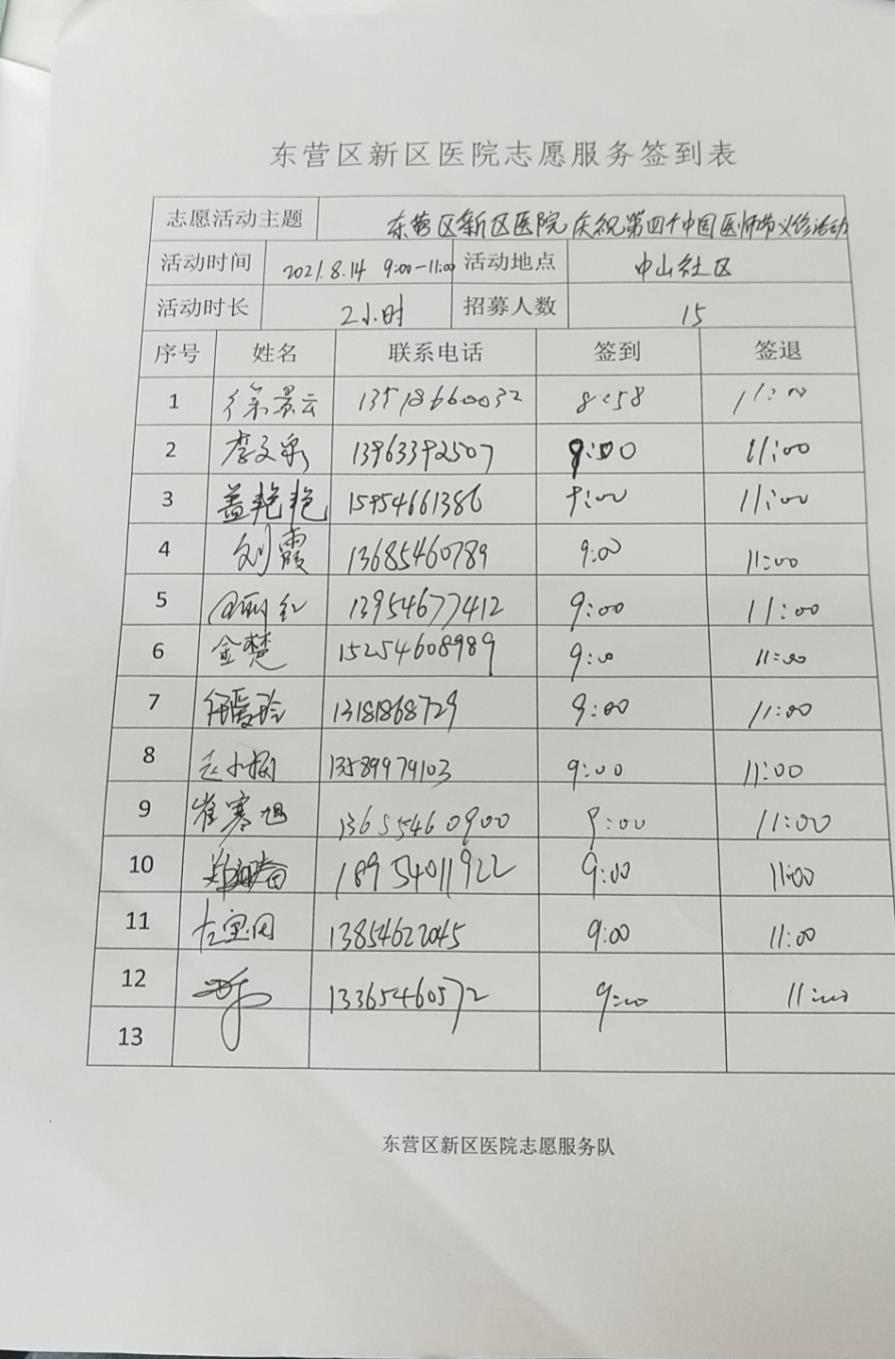 东营区新区医院志愿服务签到表
志愿活动主题 东营区新区医院庆祝第四个中国医师节义诊活动
活动时间 2021.8.14 9:00-11:00 活动地点 中山社区
活动时长 2小时 招募人数 15
序号 姓名 联系电话 签到 签退
1 徐景云 13518660032 8:58 11:00
2 李文泉 13963392507 9:00 11:00
3 盖艳艳 15954661386 9:00 11:00
4 刘霞 13685460789 9:00 11:00
5 13954677412 9:00 11:00
6 金楚 15254608989 9:00 11:00
7 任爱玲 13181868729 9:00 11:00
8 赵小梅 13589979103 9:00 11:00
9 崔寒旭 13655460900 9:00 11:00
10 18954011922 9:00 11:00
11 左宝国 13854622045 9:00 11:00
12 13365460572 9:00 11:00
13
东营区新区医院志愿服务队